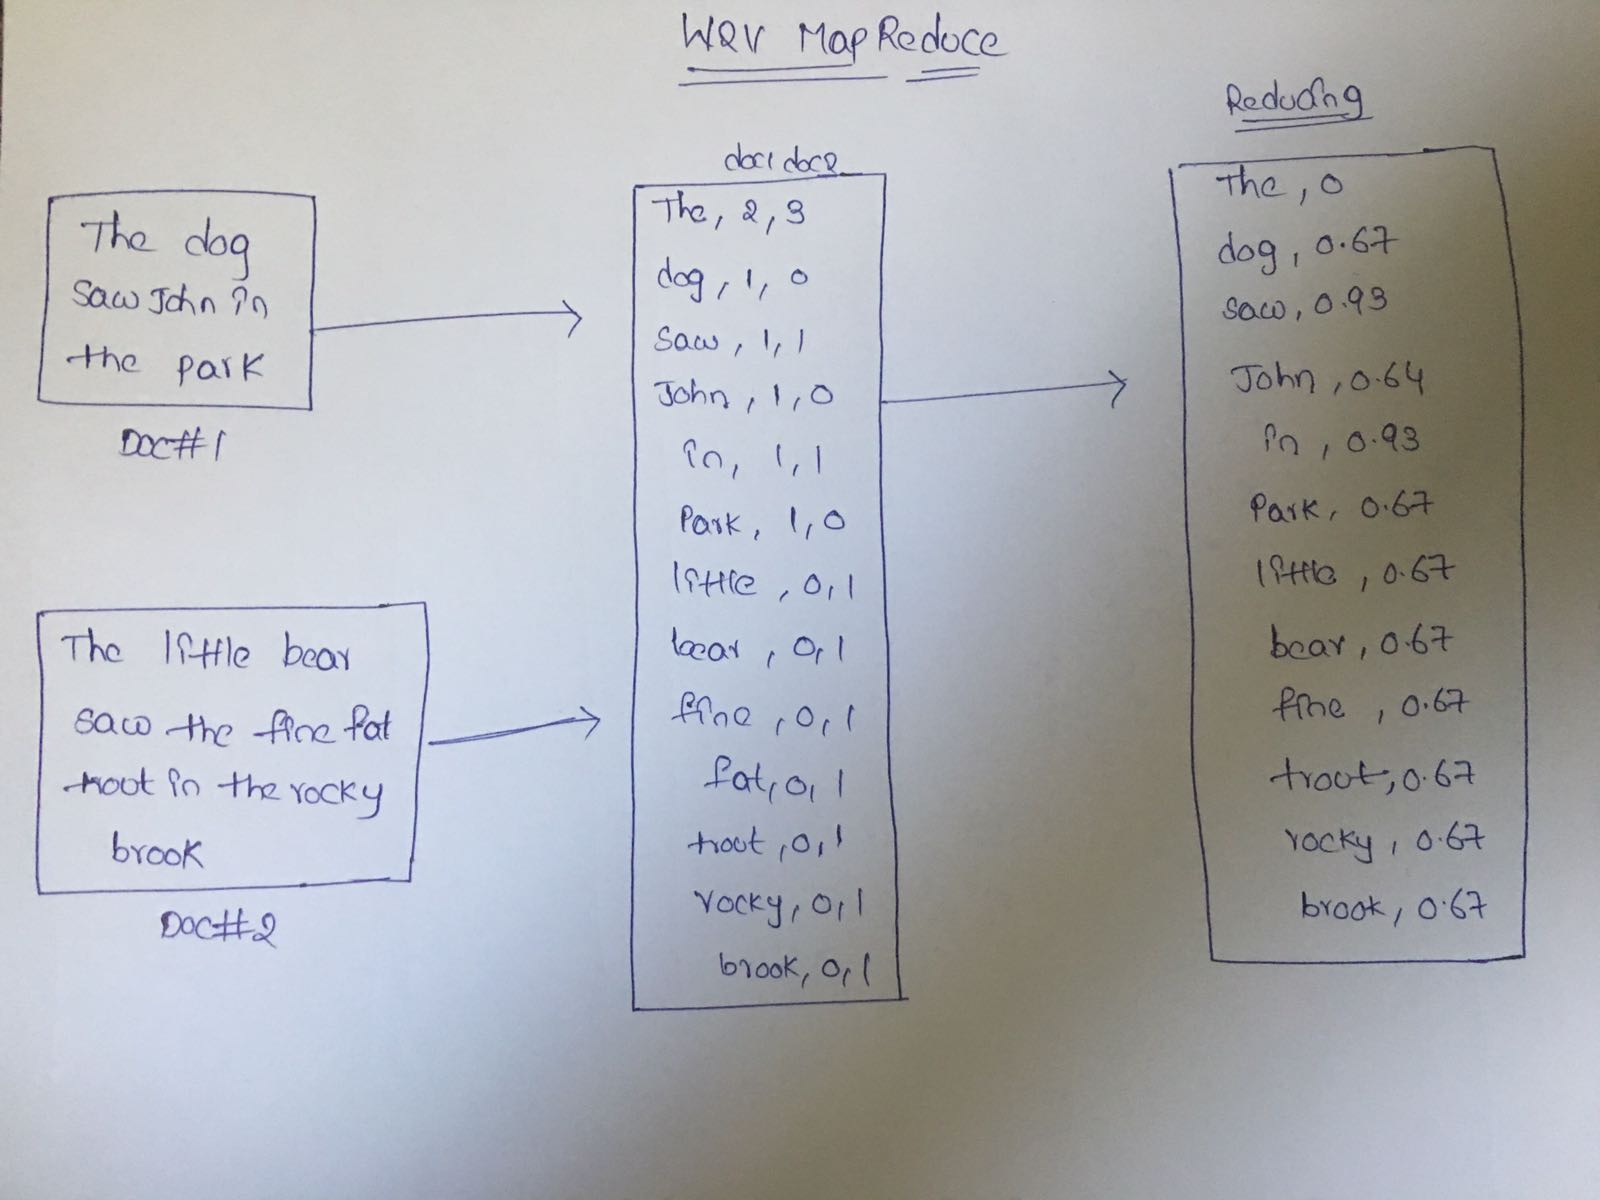 WRV MapReduce
The dog
saw John in
the park
DOC#1
The little bear
saw the fine fat
trout in the rocky
brook
DOC#2
doc1 doc2
The, 2, 3
dog, 1, 0
saw, 1, 1
John, 1, 0
in, 1, 1
Park, 1, 0
little, 0, 1
bear, 0, 1
fine, 0, 1
fat, 0, 1
trout, 0, 1
rocky, 0, 1
brook, 0, 1
Reducing
The, 0
dog, 0.67
saw, 0.93
John, 0.64
in, 0.93
Park, 0.67
little, 0.67
bear, 0.67
fine, 0.67
trout, 0.67
rocky, 0.67
brook, 0.67